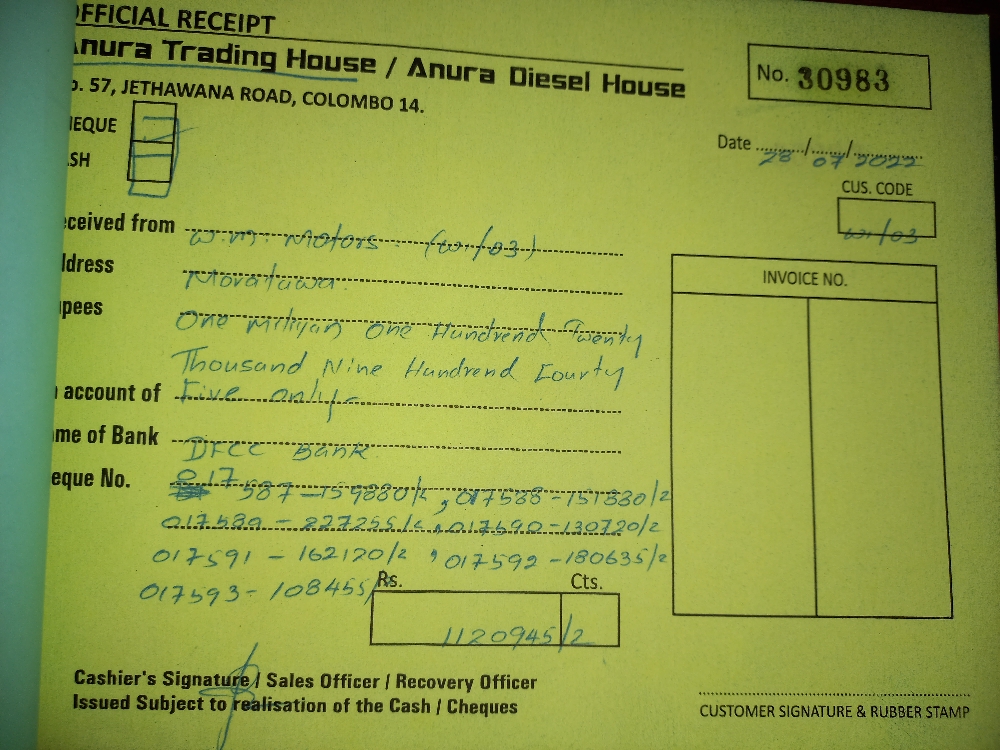 OFFICIAL RECEIPT
Anura Trading House / Anura Diesel House
No. 30983
o. 57, JETHAWANA ROAD, COLOMBO 14.
HEQUE
SH
Date 28/07/2022
CUS. CODE
w/03
eceived from W.M. Motors (w/03)
ddress Moratuwa
INVOICE NO.
upees One Miliyan One Hundrend Twenty
Thousand Nine Hundrend Fourty
account of Five only
me of Bank DFCC Bank
eque No. 017587-159880/=, 017588-151880/=
017589-227255/=, 017590-130720/=
017591-162120/=, 017592-180635/=
017593-108455/
Rs. Cts.
1120945/=
Cashier's Signature / Sales Officer / Recovery Officer
Issued Subject to realisation of the Cash / Cheques
CUSTOMER SIGNATURE & RUBBER STAMP